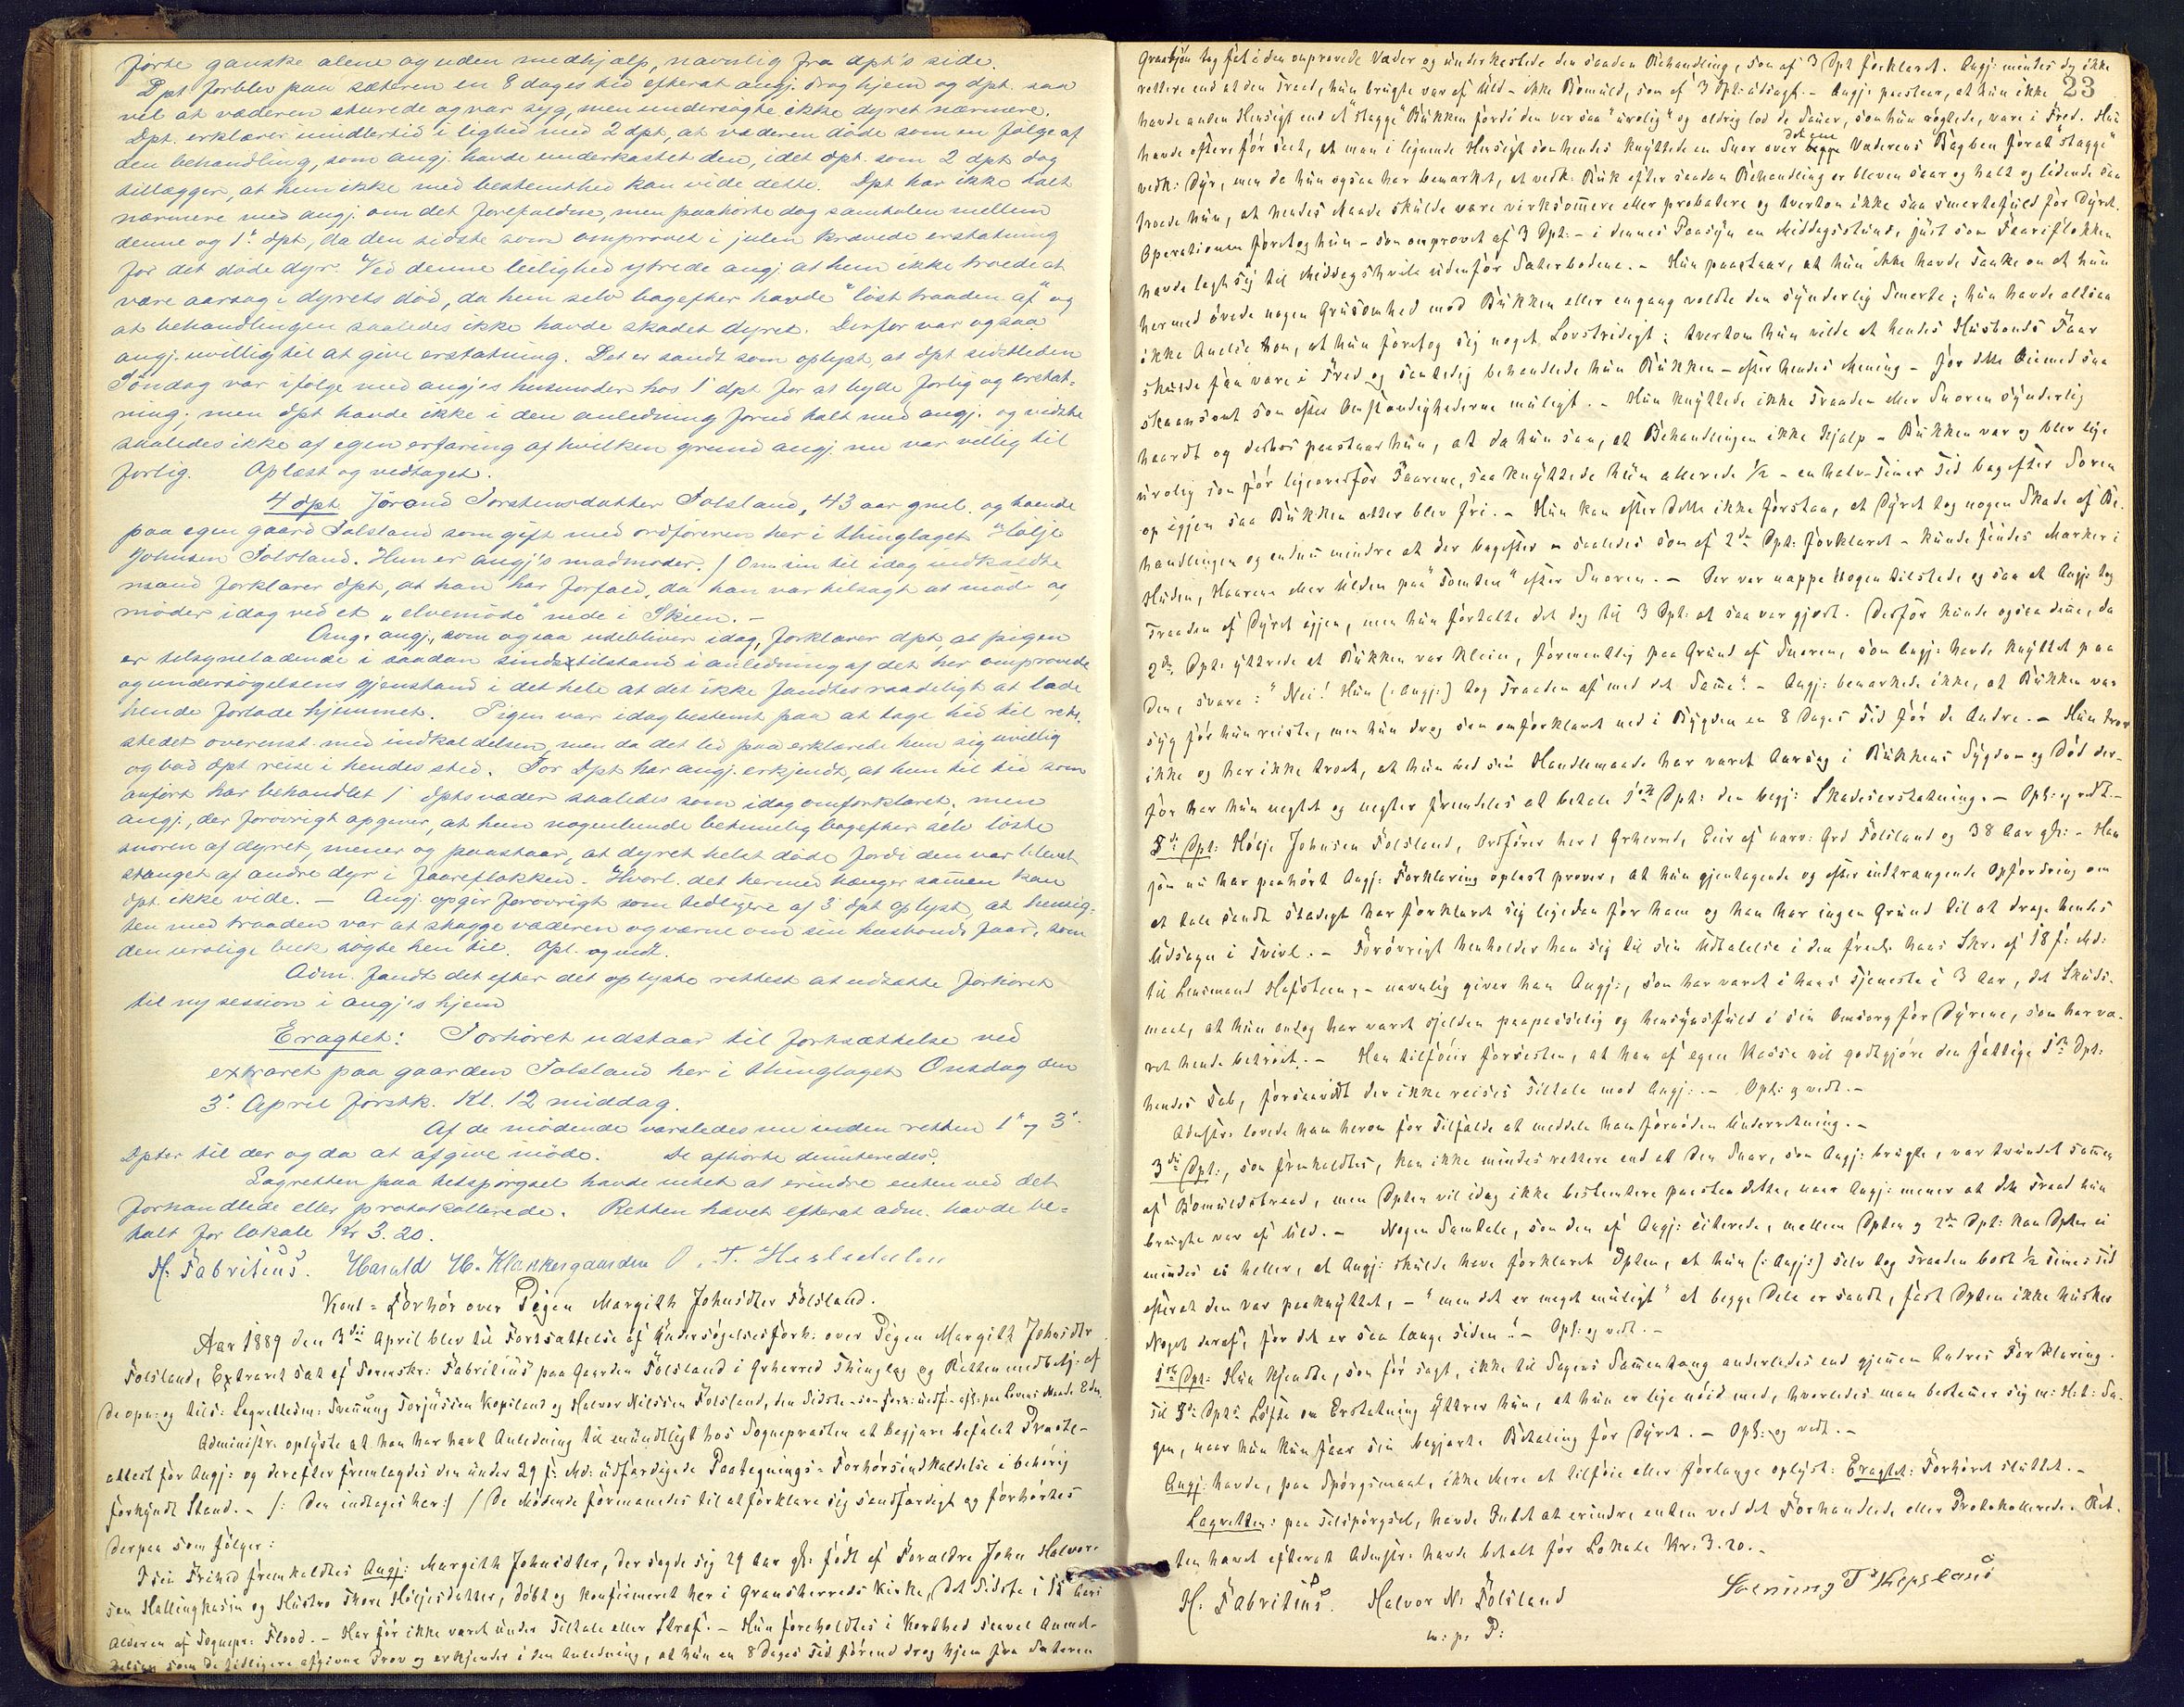 førte ganske alene og uden medhjælp, navnlig fra dpt's side.
Dpt forblev paa sæteren en 8 dages tid efterat angj. drog hjem og dpt. saa
vel at væderen sturede og var syg, men undersøgte ikke dyret nærmere.
Dpt. erklærer imidlertid i lighed med 2 dpt, at væderen døde som en følge af
den behandling, som angj. havde underkastet den, idet dpt. som 2 dpt dog
tillægger, at hun ikke med bestemthed kan vide dette. Dpt har ikke talt
nærmere med angj. om det forefaldne, men paahørte dog samtalen mellem
denne og 1' dpt, da den sidste som omprovet i julen krævede erstatning
for det døde dyr. Ved denne leilighed ytrede angj. at hun ikke troede at
være aarsag i dyrets død, da hun selv bagefter havde "løst traaden af" og
at behandlingen saaledes ikke havde skadet dyret. Derfor var ogsaa
angj. uvillig til at give erstatning. Det er sandt som oplyst, at dpt sidstleden
Søndag var ifølge med angj's husmoder hos 1' dpt for at byde forlig og erstat-
ning; men dpt havde ikke i den anledning forud talt med angj. og vidste
saaledes ikke af egen erfaring af hvilken grund angj. nu var villig til
forlig. Oplæst og vedtaget.
4 dpt Jørand Torstensdatter Folsland, 43 aar gml. og hjemme
paa egen gaard Folsland som gift med ordføreren her i thinglaget Hølje
Johnsen Folsland. Hun er angj's madmoder. / Om sin til idag indkaldte
mand forklarer dpt, at han har forfald, da han var tilsagt at møde og
møder idag ved et "elvemøde" nede i Skien. -
Ang. angj., som ogsaa udebliver idag, forklarer dpt, at pigen
er tilsyneladende i saadan sindstilstand i anledning af det her omprovede
og undersøgelsens gjenstand i det hele at det ikke fandtes raadeligt at lade
hende forlade hjemmet. Pigen var idag bestemt paa at tage hid til rets-
stedet overenst. med indkaldelsen, men da det led paa erklærede hun sig uvillig
og bad dpt reise i hendes sted. For dpt har angj. erkjendt, at hun til tid som
anført har behandlet 1' dpts væder saaledes som idag omforklaret; men
angj., der forøvrigt opgiver, at hun nogenlunde betimelig bagefter selv løste
snoren af dyret, mener og paastaar, at dyret helst døde fordi den var blevet
stanget af andre dyr i faareflokken. Hvorl. det hermed hænger sammen kan
dpt ikke vide. - Angj. opgir forøvrigt som tidligere af 3' dpt oplyst, at hensig-
ten med traaden var at stagge væderen og værne om sin husbonds faar, som
den urolige buk søgte hen til. Opl. og vedt.
Adm. fandt det efter det oplyste rettest at udsætte forhøret
til ny session i angj's hjem
Eragtet: Forhøret udstaar til fortsættelse ved
extraret paa gaarden Folsland her i thinglaget Onsdag den
3' April førstk. Kl. 12 middag.
Af de mødende varsledes nu inden retten 1' og 3'
Dpter til der og da at afgive møde. De afhørte dimiteredes.
Lagretten paa tilspørgsel havde intet at erindre enten ved det
forhandlede eller protokollerede. Retten hævet efterat adm. havde be-
talt for lokale Kr 3.20.
H. Fabritius. Harald H. Klonkergaarden
Kont - Forhør over Pigen Margith Johnsdtr Folsland.
Aar 1889 den 3die April blev til Fortsættelse af Undersøgelsesforh: over Pigen Margith Johnsdtr
Folsland, Extraret sat af Sorenskr: Fabritius paa Gaarden Folsland i Grherred Thinglag og Retten medbetj: af
de opn: og tils: Lagrettesm: Svenung Torjusen Kopsland og Halvor Nilssen Folsland, den Sidste - som forn: udf: - afl: paa Lovens Maade Eden.
Administr: oplyste at han har havt Anledning til mundtligt hos Sognepræsten at begjære befalet Præste-
attest for Angj: og derefter fremlagdes den under 29 f: Md: udfærdigede Paategnings-Forhørsindkaldelse i behørig
forkyndt Stand. - /: Den indtages her :/ / De Mødende formanedes til at forklare sig sandfærdigt og forhørtes
derpaa som følger:
I sin Frihed fremkaldtes Angj: Margith Johnsdtr, der sagde sig 29 Aar gl: født af Forældre John Halvor-
sen Hallingkasin og Hustro Thore Høljesdatter, døbt og konfirmeret her i Gransherreds Kirke, det Sidste i 15 Aars
Alderen af Sognepr: Flood. - Har før ikke været under Tiltale eller Straf. - Hun foreholdtes i Korthed saavel Anmel-
delsen som de tidligere afgivne Prov og erkjender i den Anledning, at hun en 8 Dages Tid førend drog hjem fra Sæteren
23
Graabjøn tog fat i den omprovede Væder og underkastede den saadan Behandling, som af 3 Dpt forklaret. Angj: mindes dog ikke
rettere end at den Traad, hun brugte var af Uld - ikke Bomuld, som af 3 Dpt: udsagt. - Angj: paastaar, at hun ikke
havde anden Hensigt end at "stagge" Bukken fordi den var saa "urolig" og aldrig lod de Sauer, som hun røgtede, være i Fred. Hun
havde oftere før seet, at man i lignende Hensigt som hendes knyttede en Snor over det ene begge Væderens Bagben for at "stagge"
vedk: Dyr, men da hun ogsaa har bemærket, at vedk: Buk efter saadan Behandling er bleven saar og halt og lidende saa
troede hun, at hendes Maade skulde være virksommere eller probatere og tvertom ikke saa smertefuld for Dyret.
Operationen foretog hun - som omprovet af 3 Dpt: - i dennes Paasyn en Middagsstund, just som Faareflokken
havde lagt sig til Middagshvile udenfor Sæterbodene. - Hun paastaar, at hun ikke havde Tanke om at hun
hermed øvede nogen Grusomhed mod Bukken eller engang voldte den synderlig Smerte; hun havde altsaa
ikke Anelse om, at hun foretog sig noget Lovstridigt; tvertom hun vilde at hendes Husbonds Faar
skulde faa være i Fred og samtidig behandlede hun Bukken - efter hendes Mening - for dette Øiemed saa
skaansomt som efter Omstændighederne muligt. - Hun knyttede ikke Traaden eller Snoren synderlig
haardt og derhos paastaar hun, at da hun saa, at Behandlingen ikke hjalp - Bukken var og blev lige
urolig som før ligeoverfor Faarene, saa knyttede hun allerede 1/2 - en halv - Times Tid bagefter Snoren
op igjen saa Bukken atter blev fri. - Hun kan efter dette ikke forstaa, at Dyret tog nogen Skade af Be-
handlingen og endnu mindre at der bagefter - saaledes som af 2den Dpt: forklaret - kunde findes Mærker i
Huden, Haarene eller Ulden paa "Tomten" efter Snoren. - Der var nappe Nogen tilstede og saa at Angj: tog
Traaden af Dyret igjen, men hun fortalte det dog til 3 Dpt: at saa var gjort. Derfor kunde ogsaa denne, da
2den Dpt: yttrede at Bukken var klein, formentlig paa Grund af Snoren, som Angj: havde knyttet paa
den, svare: "Nei! Hun (: Angj:) tog Traaden af med det Samme". - Angj: bemærkede ikke, at Bukken var
syg før hun reiste, men hun drog som omforklaret ned i Bygden en 8 Dages Tid før de Andre. - Hun tror
ikke og har ikke troet, at hun ved sin Handlemaade har været Aarsag i Bukkens Sygdom og Død der-
for har hun negtet og negter fremdeles at betale 1ste Dpt: den begj: Skadeserstatning. - Opl: og vedt. -
5te Dpt: Hølje Johnsen Folsland, Ordfører her i Grherred, Eier af nærv: Grd Folsland og 38 Aar gl: - Han
som nu har paahørt Angj: Forklaring oplæst prover, at hun gjentagende og efter indtrængende Opfordring om
at tale sandt stadigt har forklaret sig ligedan for ham og han har ingen Grund til at drage hendes
Udsagn i Tvivl. - Forøvrigt henholder han sig til sin Udtalelse i den freml: hans Skr: af 18 f: Md:
til Lensmand Hafsteen, - navnlig giver han Angj:, som har været i hans Tjeneste i 3 Aar, det Skuds-
maal, at hun endog har været sjelden paapasselig og hensynsfuld i sin Omsorg for Dyrene, som har væ-
ret hende betroet. - Han tilføier forresten, at han af egen Kasse vil godtgjøre den fattige 1ste Dpt:
hendes Tab, forsaavidt der ikke reises Tiltale mod Angj: - Opl: og vedt. -
Admstr: lovede ham herom for Tilfælde at meddele ham fornøden Underretning. -
3die Dpt:, som fremkaldtes, kan ikke mindes rettere end at den Snor, som Angj: brugte, var tvundet sammen
af Bomuldstraad, men Dpten vil idag ikke bestemtere paastaa dette, naar Angj: mener at den Traad hun
brugte var af Uld. - Nogen Samtale, som den af Angj: citerede, mellem Dpten og 2den Dpt: kan Dpten ei
mindes ei heller, at Angj: skulde have forklaret Dpten, at hun (: Angj:) selv tog Traaden bort 1/2 Times Tid
efterat den var paaknyttet, - "men det er meget muligt" at begge Dele er sandt, fast Dpten ikke husker
Noget deraf, for det er saa længe siden". - Opl: og vedt. -
1ste Dpt: Hun kjendte, som før sagt, ikke til Sagens Sammenhæng anderledes end gjennem Andres Forklaring.
Til 5te Dpts Løfte om Erstatning yttrer hun, at hun er lige nøid med, hvorledes man bestemmer sig m: H: t: Sa-
gen, naar hun kun faar sin begjærte Betaling for Dyret. - Opl: og vedt. -
Angj: havde, paa Spørgsmaal, ikke Mere at tilføie eller forlange oplyst: Eragtet: Forhøret sluttet. -
Lagretten: paa Tilspørgsel, havde Intet at erindre enten ved det Forhandlede eller Protokollerede. Ret-
ten hævet efterat Admstr: havde betalt for Lokale Kr: 3.20. -
H. Fabritius. Halvor N. Folsland
m: p: P: